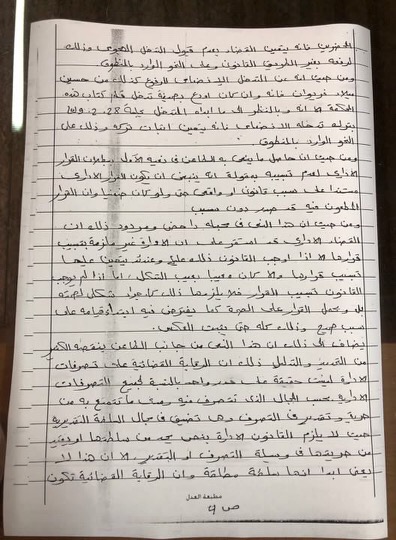 الخصوم فإنه يتعين القضاء بعدم قبول التدخل الهجومي وذلك
لرفعه بغير الطريق القانوني وعلى النحو الوارد بالمنطوق
ومن حيث انه عن التدخل الانضمامي المرفوع كذلك من حسين
ميلاد فإنه وان كان اودع بصحيفة تدخل قلم كتاب هذه
المحكمة الا انه وبالنظر الى ما ابداه المتدخل بجلسة 28.2
بتركه تدخله الانضمامي فإنه يتعين اثبات تركه وذلك على
النحو الوارد بالمنطوق
ومن حيث ان حاصل ما ينعى به الطاعن في نعيه الأول بطلان القرار
الاداري لعدم تسبيبه بمقولة انه ينبغي ان يكون القرار الاداري
مستندا على سبب قانوني او واقعي حتى ولو كان ضمنيا وان القرار
المطعون فيه قد صدر دون سبب
ومن حيث ان هذا النعي في جملته داحض ومردود ذلك ان
القضاء الاداري قد استقر على ان الادارة غير ملزمة بتسبيب
قرارها الا اذا اوجب القانون ذلك عليها وعندئذ يتعين عليها
تسبيب قرارها والا كان معيبا بعيب الشكل اما اذا لم يوجب
القانون تسبيب القرار فلا يلزمها ذلك كإجراء شكلي لصحته
بل ويحمل القرار على الصحة كما يفترض فيه ابتداء قيامه على
سبب صحيح وذلك كله حتى يثبت العكس
يضاف الى ذلك ان هذا النعي من جانب الطاعن ينقصه الكثير
من التقدير والتحليل ذلك ان الرقابة القضائية على تصرفات
الادارة ليست حقيقة على قدر واحد بالنسبة لجميع التصرفات
الادارية بحسب المجال الذي تتصرف فيه ومدى ما تتمتع به من
حرية وتقدير في التصرف وهي تضيق في مجال السلطة التقديرية
حيث لا يلزم القانون الادارة بنص يحد من سلطتها او يقيد
من حريتها في وسيلة التصرف او التقدير الا ان هذا لا
يعني ابدا انها سلطة مطلقة وان الرقابة القضائية تكون
مطبعة العدل
ص 4